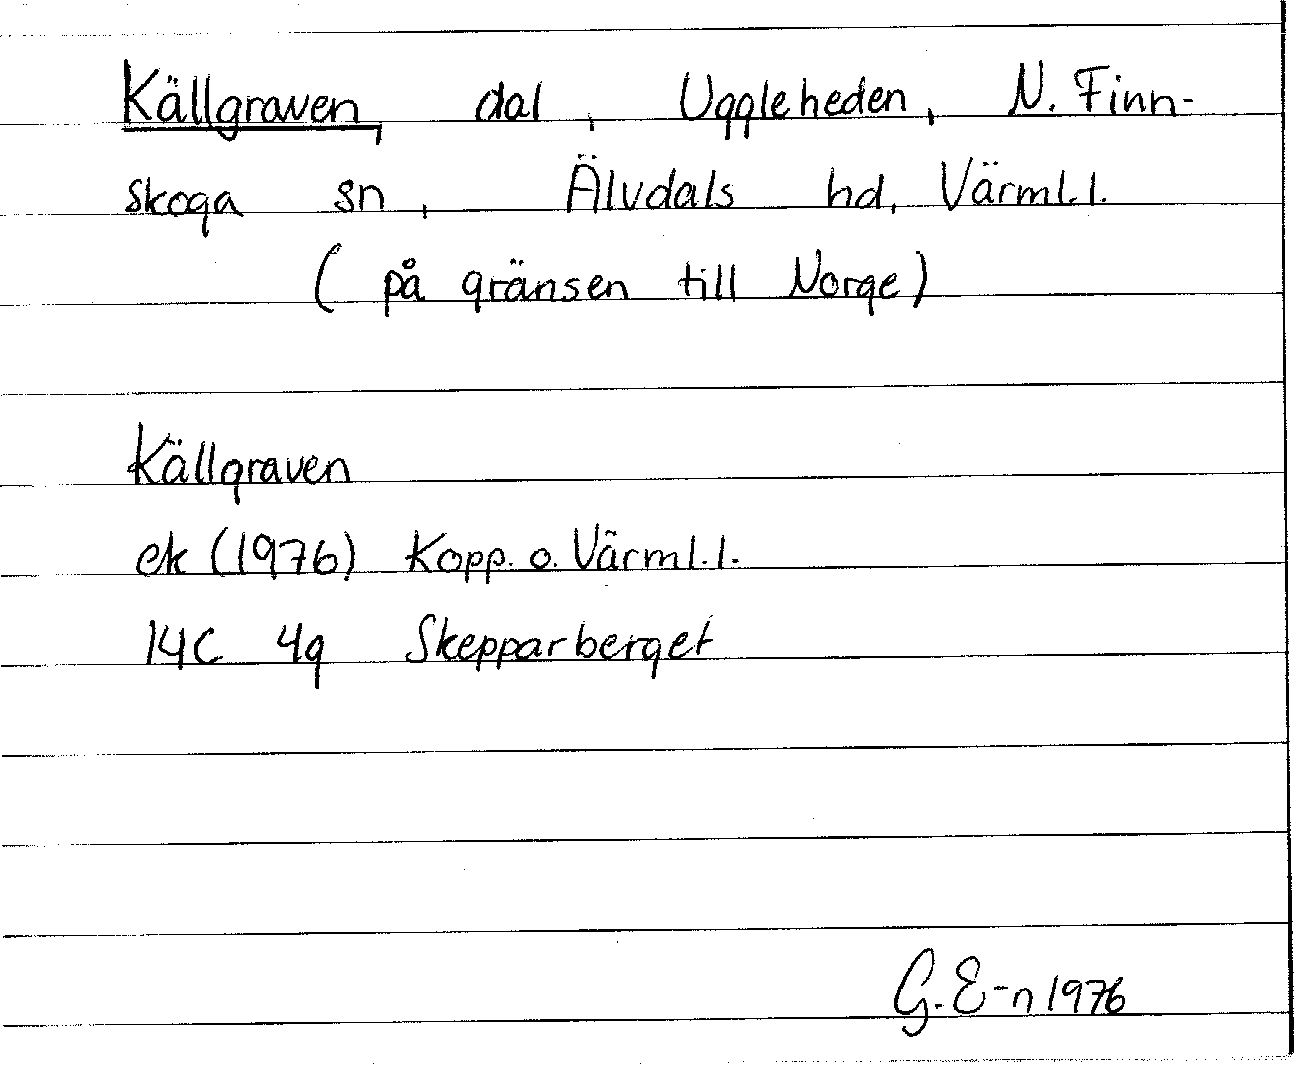 Källgraven, dal, Uggleheden, N. Finn-
skoga sn, Älvdals hd, Värml.l.
(på gränsen till Norge)
Källgraven
ek (1976) Kopp. o. Värml.l.
14C 4g Skepparberget
G. E-n 1976